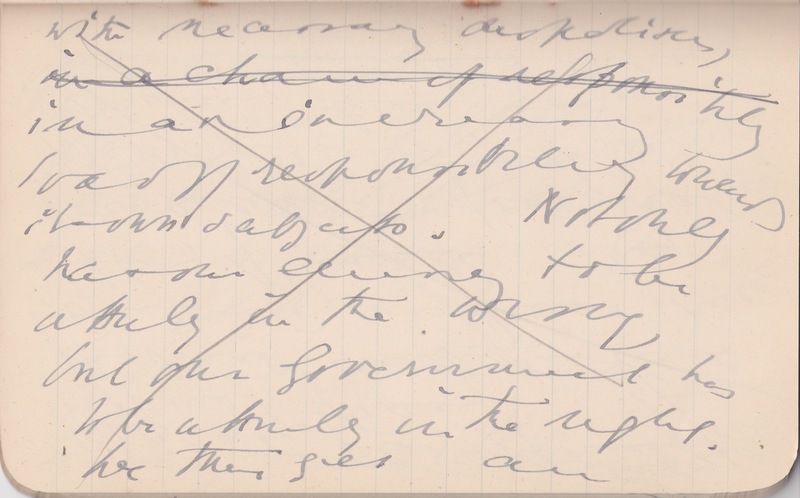 with necessary despotism,
in a chain of responsibility
in an increasing
load of responsibility towards
its own subjects. Not only
has our enemy to be
utterly in the wrong
but our Government has
to be utterly in the right.
We thus get an